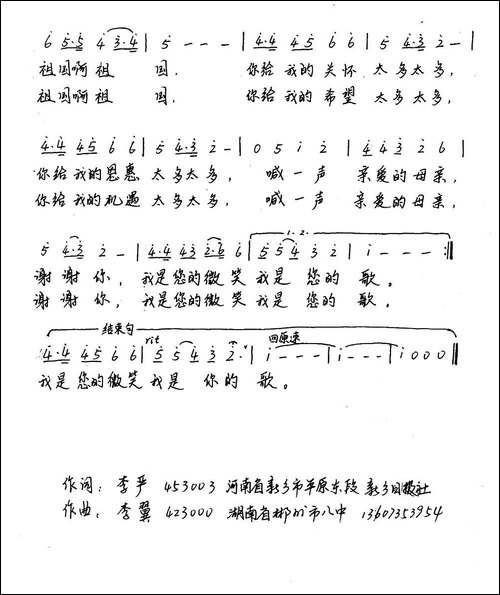 6 5·5 4 3·4 | 5 - - - | 4·4 4 5 6 6 | 5 4·3 2 - |
祖国啊祖 国. 你给我的关怀 太多太多,
祖国啊祖 国. 你给我的希望 太多太多,
4·4 4 5 6 6 | 5 4·3 2 - | 0 5 i 2 | 4 4 3 2 6 |
你给我的恩惠 太多太多, 喊一声 亲爱的母亲,
你给我的机遇 太多太多, 喊一声 亲爱的母亲,
5 4·3 2 - | 4·4 4 3 2·6 6 | 1. 2. 5 5 4 3 2 | i - - - :||
谢谢你, 我是您的微笑 我是 您的 歌。
谢谢你, 我是您的微笑 我是 您的 歌.
结束句 rit 回原速
4·4 4 5 6 6 | 5 5 4 3 2· | i - - - | i - - - | i 0 0 0 ||
我是您的微笑 我是 你的 歌。
作词: 李严 453003 河南省新乡市平原东段 新乡日报社
作曲: 李翼 423000 湖南省郴州市八中 13607353954